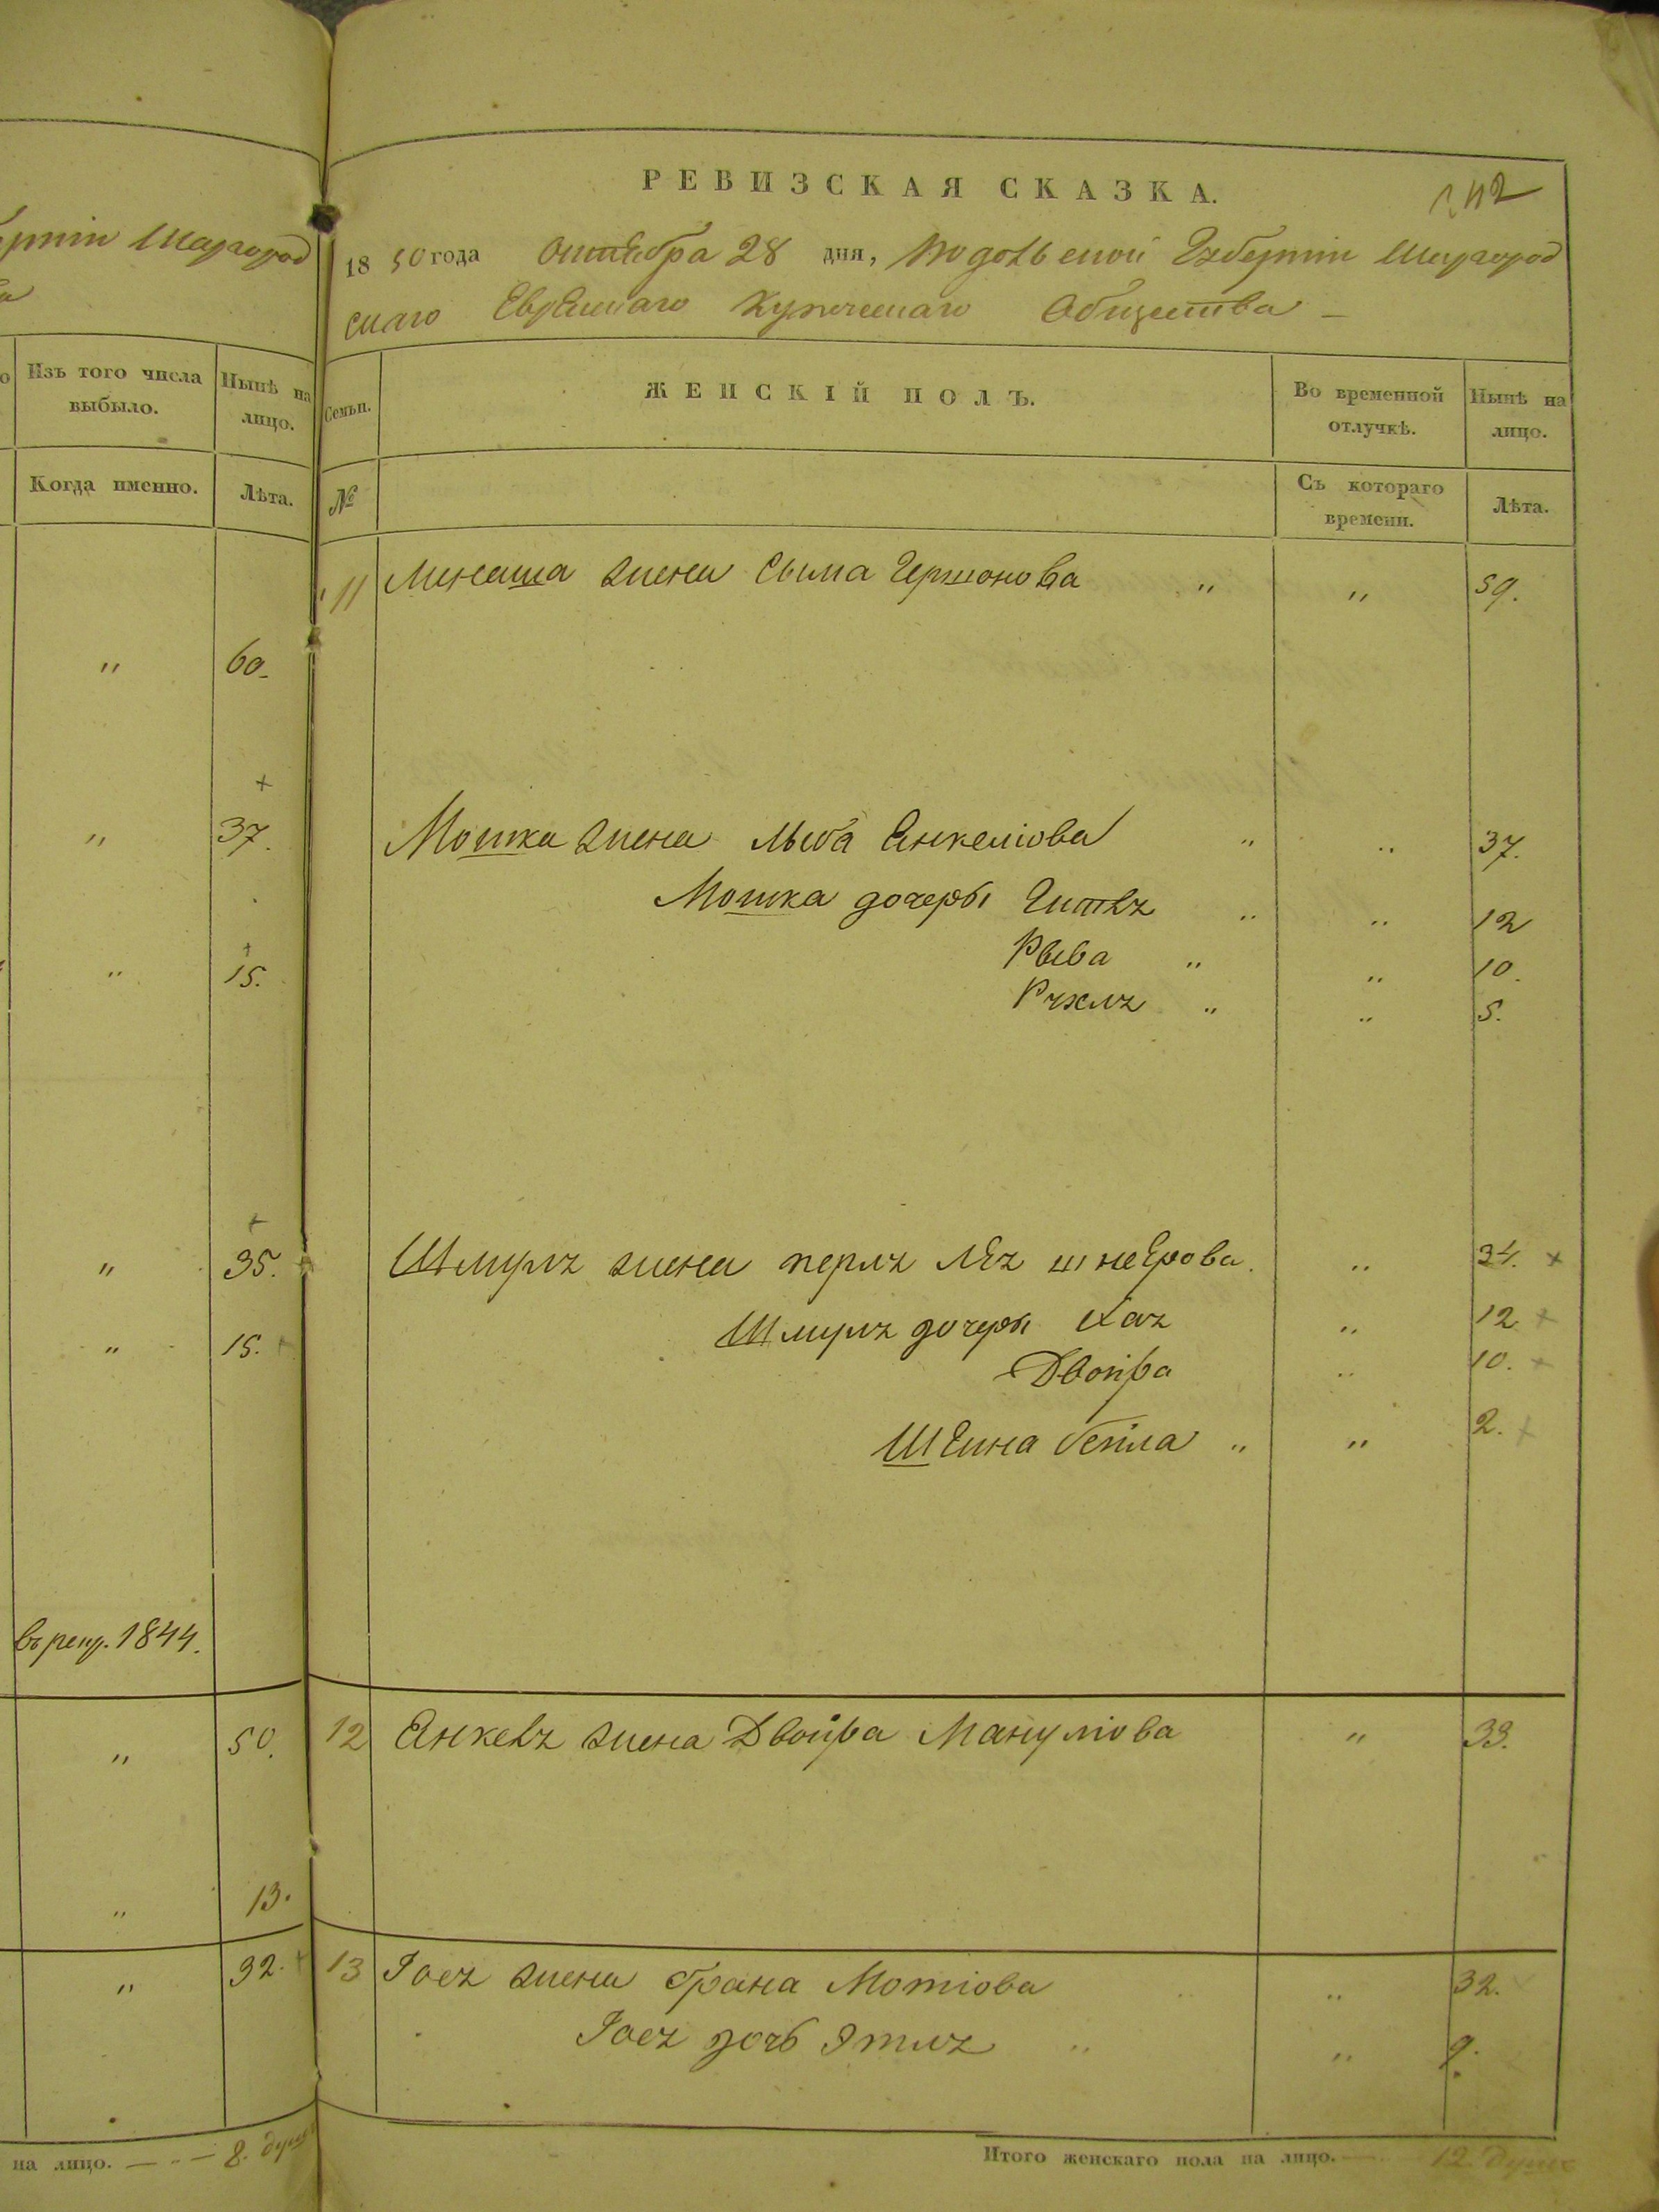 губерніи Шаргород
Изъ того числа
выбыло.
Нынѣ на
лицо.
Когда именно.
Лѣта.
" 60.
+
" 37.
+
" 15.
+
" 35.
" 15. +
въ рекр. 1844.
" 50.
" 13.
" 32. +
на лицо. — " — 8. душъ
РЕВИЗСКАЯ СКАЗКА.
142
1850 года Октября 28 дня, Подольской Губерніи Шаргород
скаго Еврейскаго Купеческаго Общества —
Семьи.
ЖЕНСКІЙ ПОЛЪ.
Во временной
отлучкѣ.
Нынѣ на
лицо.
№
Съ котораго
времени.
Лѣта.
11 Минаша жена Сыма Гершонова " " 59.
Мошка жена Лыба Енкеліова " " 37.
Мошка дочеры Гитля " " 12
Рыва " " 10.
Рухля " " 5.
Шмуля жена перля Лея шнеерова. " 34. +
Шмуля дочеры Хая " 12 +
Двойра " 10. +
Шеина бейла " " 2. +
12 Енкеля жена Двойра Мануліова " 33.
13 Іося жена брана Мотіова " " 32.
Іося дочь Этля " " 9.
Итого женскаго пола на лицо. — 12 душъ